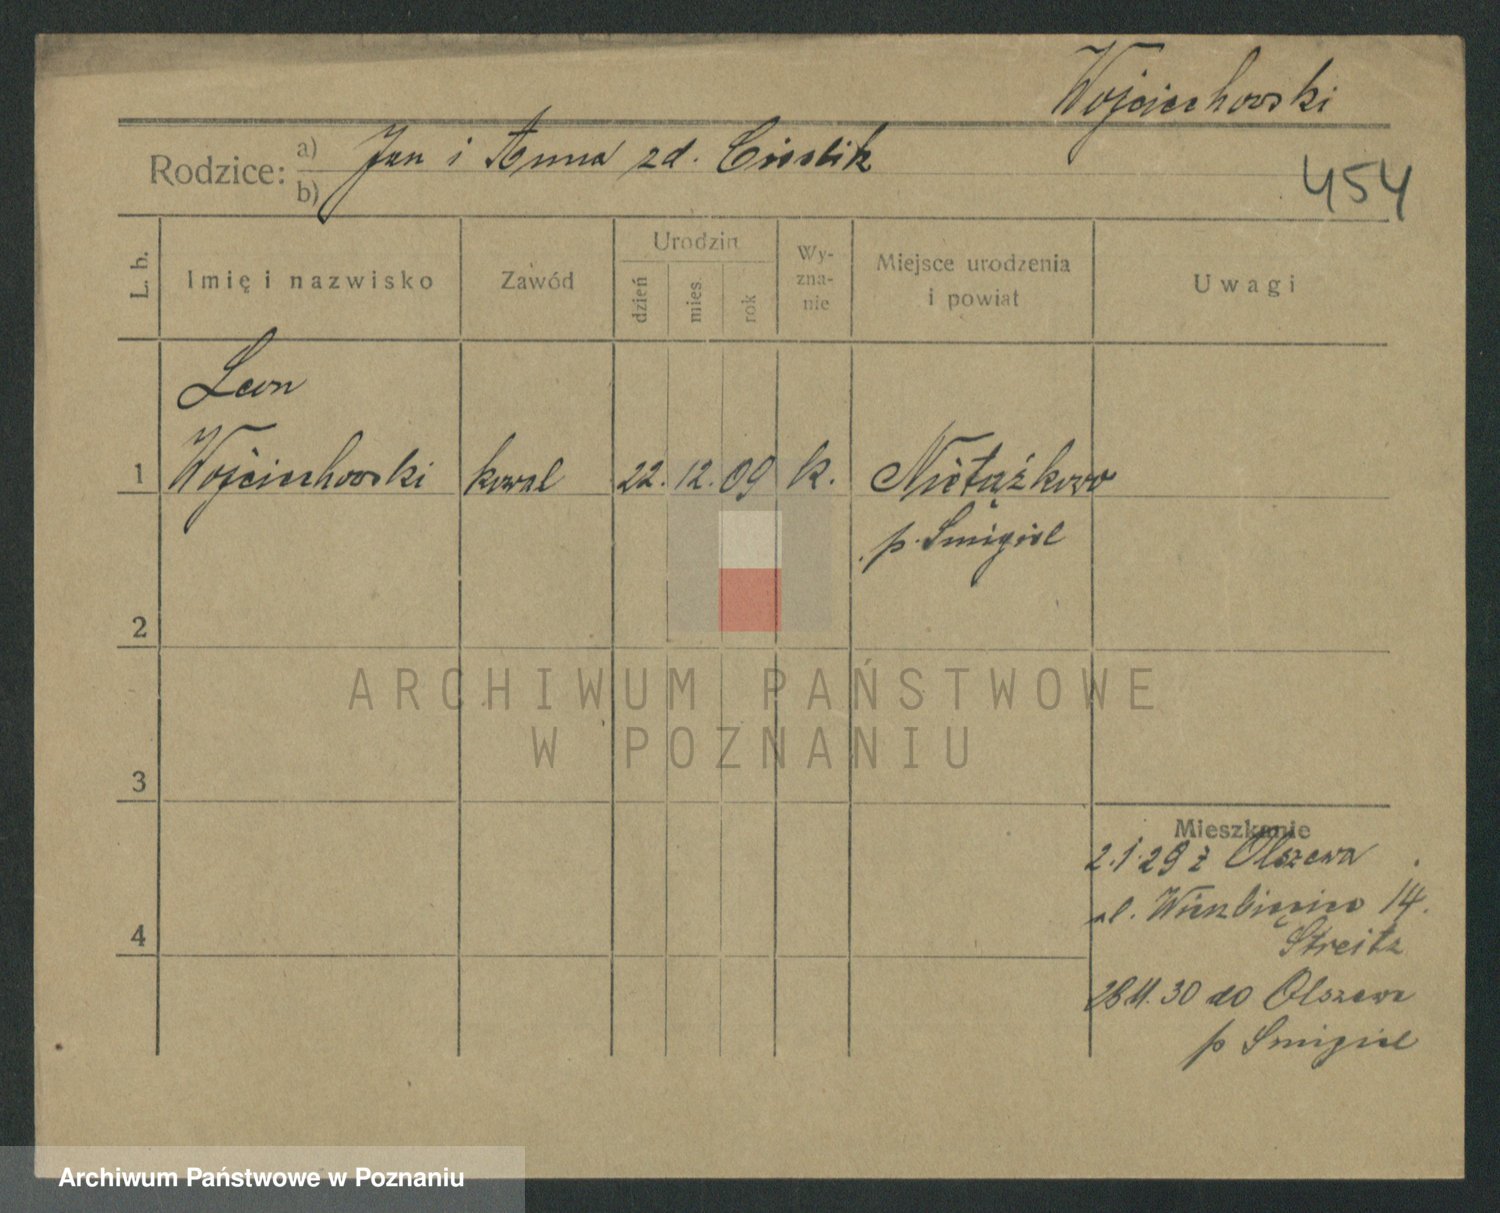 Wojciechowski
Rodzice: a) Jan i Anna zd. Cieslik
b)
454
L. b.
Imię i nazwisko
Zawód
Urodzin
dzień
mies.
rok
Wy-
zna-
nie
Miejsce urodzenia
i powiat
Uwagi
Leon
1 Wojciechowski kowal 22. 12. 09 k. Nietążkowo
p. Smigiel
2
ARCHIWUM PAŃSTWOWE
W POZNANIU
3
Mieszkanie
2.1.29 z Olszewa
ul. Wierzbięcice 14.
Streitz
4
28.11.30 do Olszewa
p Smigiel
Archiwum Państwowe w Poznaniu